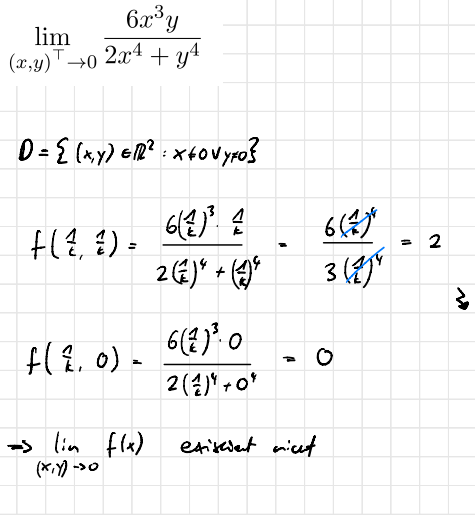 lim_{(x,y)^⊤→0} 6x³y / (2x⁴ + y⁴)
D = { (x,y) ∈ ℝ² : x≠0 ∨ y≠0 }
f(1/k, 1/k) = 6(1/k)³ · 1/k / (2(1/k)⁴ + (1/k)⁴) = 6(1/k)⁴ / 3(1/k)⁴ = 2
f(1/k, 0) = 6(1/k)³ · 0 / (2(1/k)⁴ + 0⁴) = 0
⇒ lim_{(x,y)→0} f(x) existiert nicht